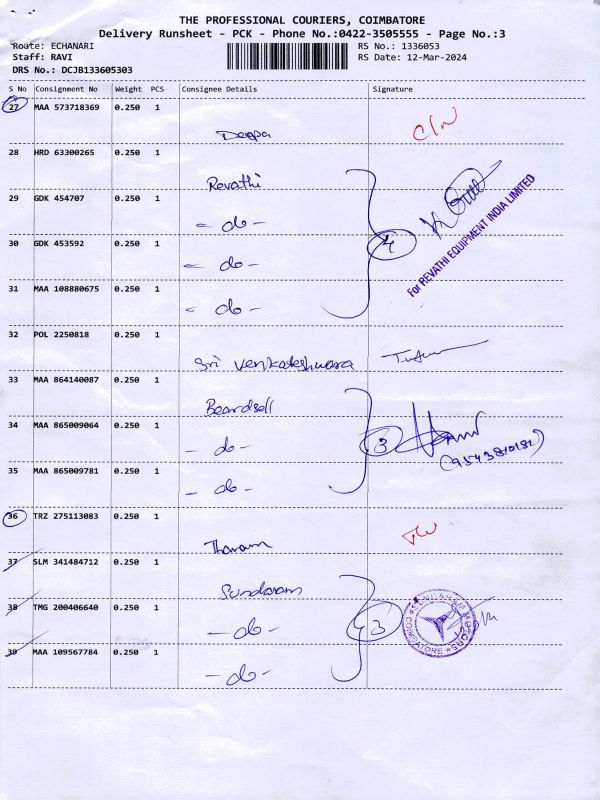 THE PROFESSIONAL COURIERS, COIMBATORE
Delivery Runsheet - PCK - Phone No.:0422-3505555 - Page No.:3
Route: ECHANARI RS No.: 1336053
Staff: RAVI RS Date: 12-Mar-2024
DRS No.: DCJB133605303
S No Consignment No Weight PCS Consignee Details Signature
27 MAA 573718369 0.250 1
Deepa
28 HRD 63300265 0.250 1
Revathi
29 GDK 454707 0.250 1
- do -
30 GDK 453592 0.250 1
- do - 4
For REVATHI EQUIPMENT INDIA LIMITED
31 MAA 108880675 0.250 1
- do -
32 POL 2250818 0.250 1
Sri Venkateshwara
33 MAA 864140087 0.250 1
Beardsell
34 MAA 865009064 0.250 1
- do - 3
35 MAA 865009781 0.250 1
- do -
36 TRZ 275113083 0.250 1
37 SLM 341484712 0.250 1
Sundaram
38 TMG 200406640 0.250 1
- do - 3
SUNDARAM MOTORS
COIMBATORE
39 MAA 109567784 0.250 1
- do -